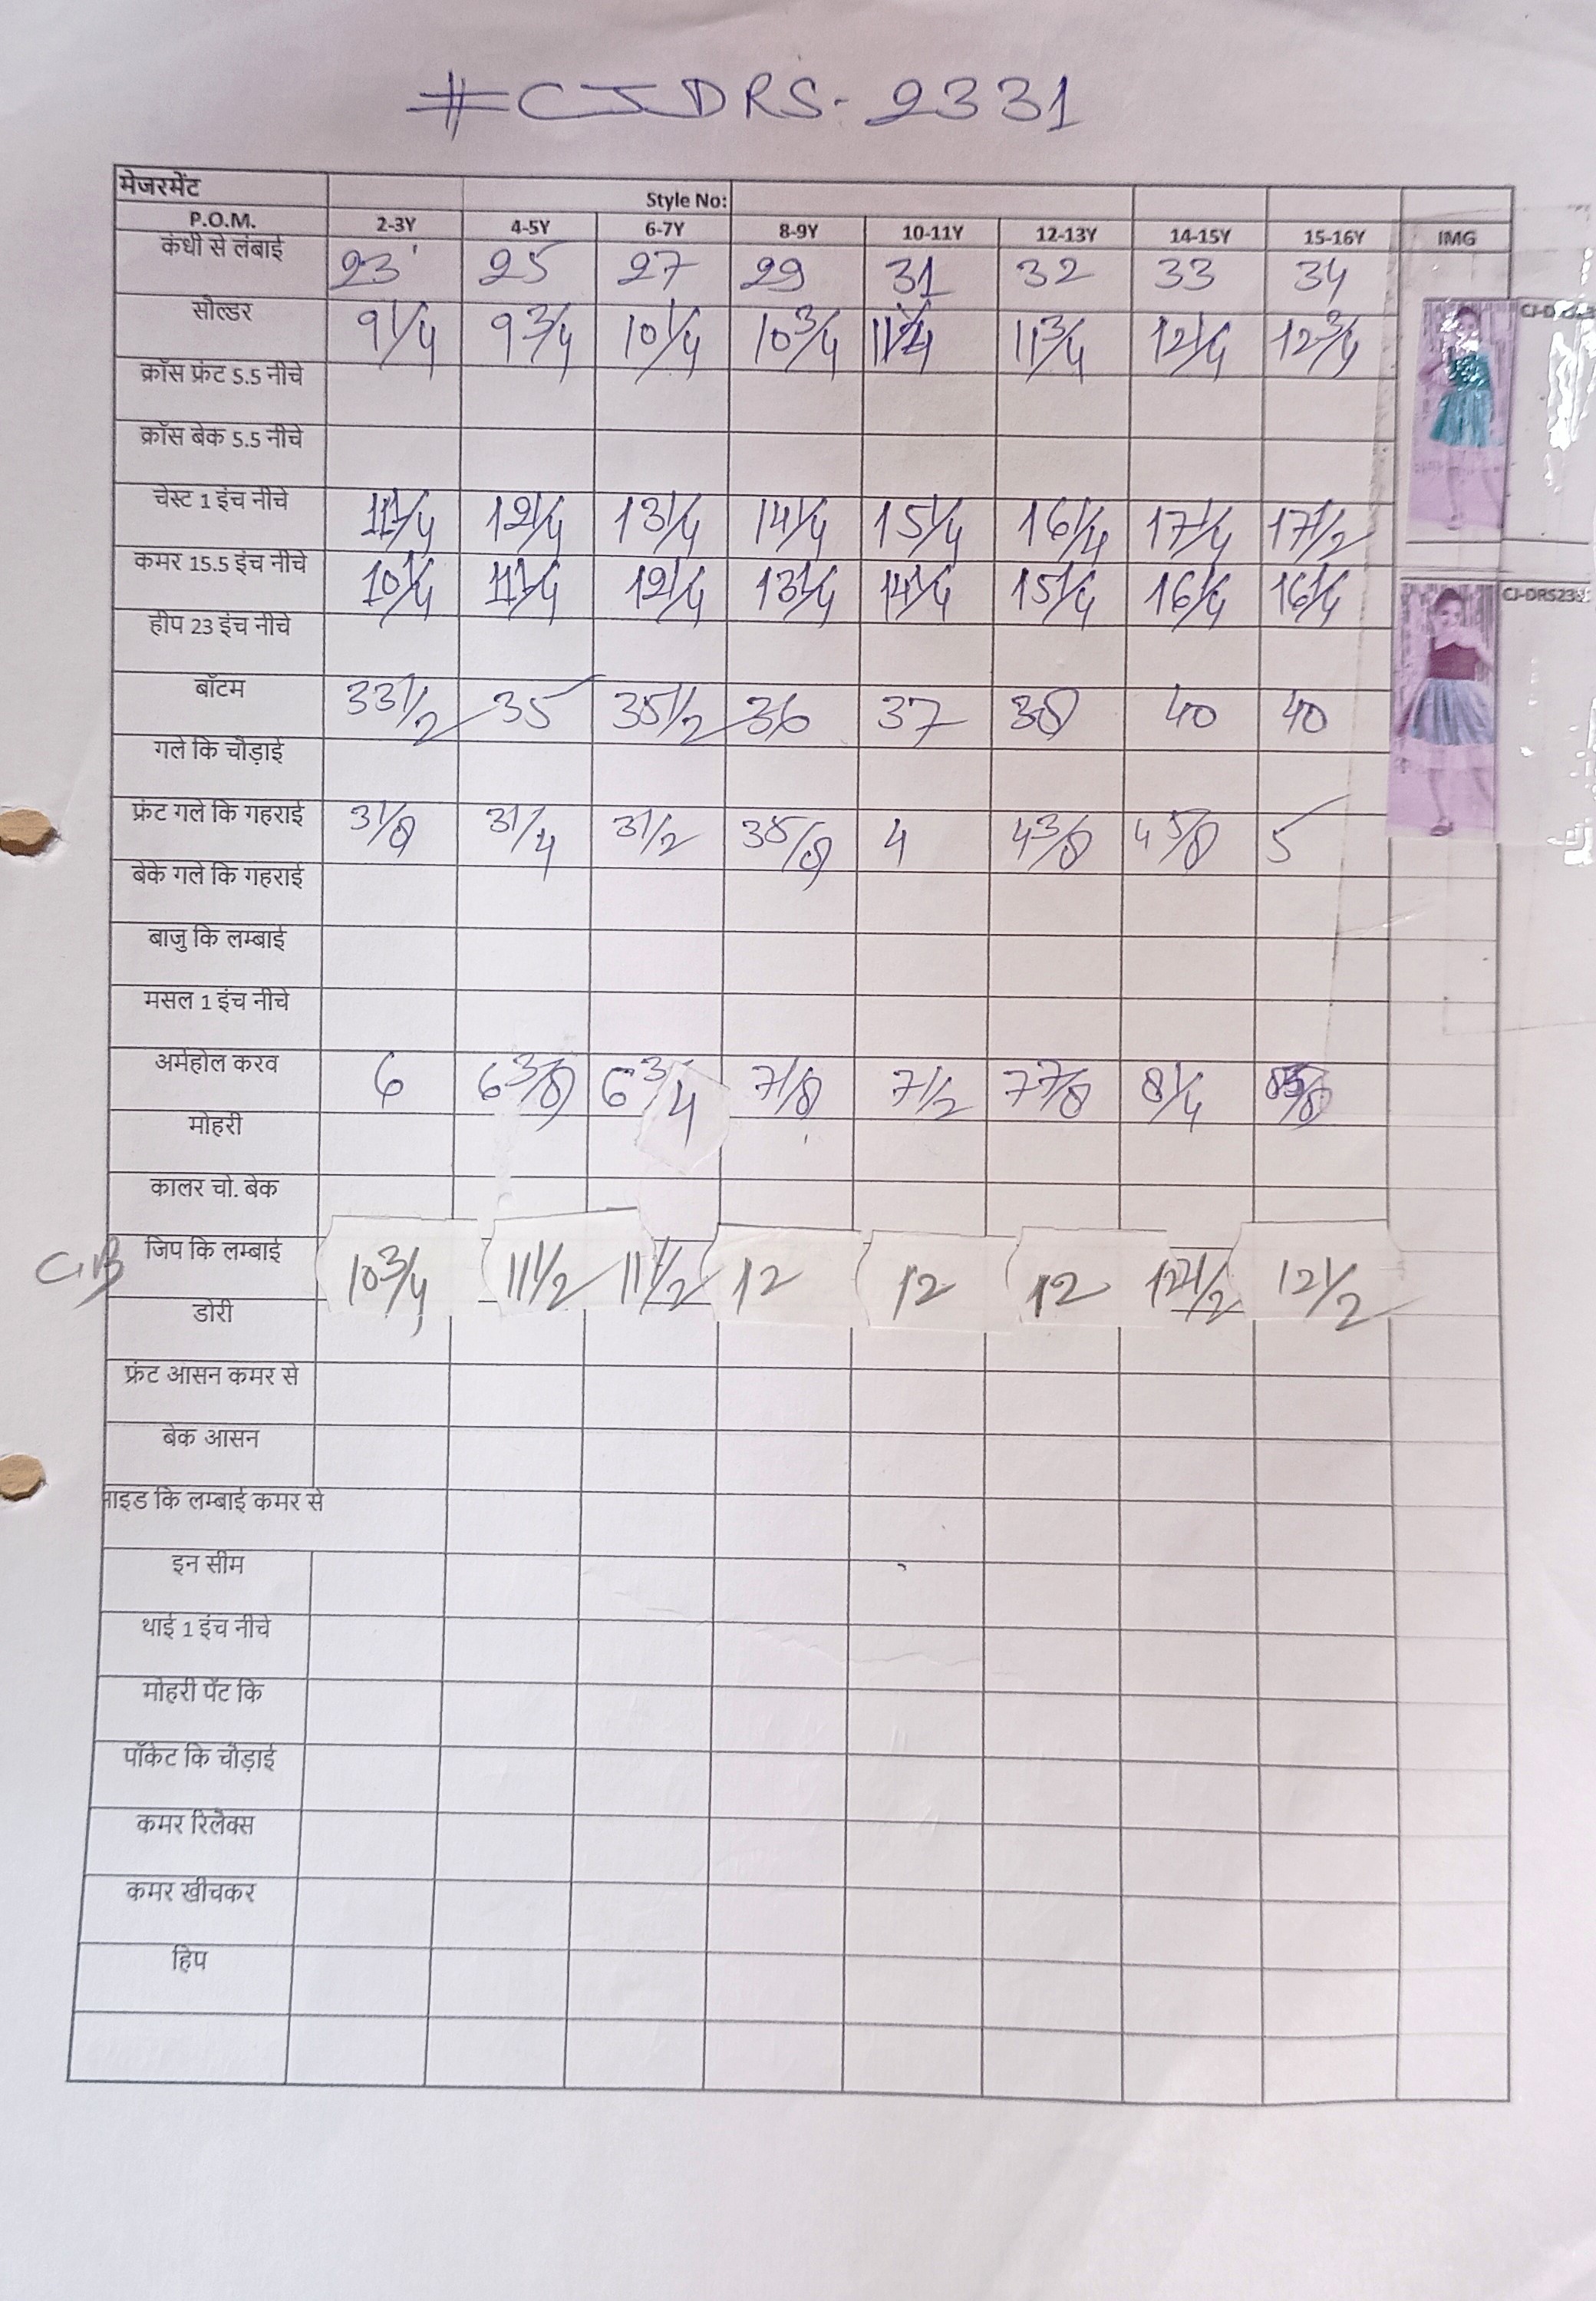 #CJDRS-2331
मेजरमेंट Style No:
P.O.M. 2-3Y 4-5Y 6-7Y 8-9Y 10-11Y 12-13Y 14-15Y 15-16Y IMG
कंधी से लंबाई 23 25 27 29 31 32 33 34
सोल्डर 9 1/4 9 3/4 10 1/4 10 3/4 11 1/4 11 3/4 12 1/4 12 3/4
क्रॉस फ्रंट 5.5 नीचे
क्रॉस बेक 5.5 नीचे
चेस्ट 1 इंच नीचे 11 1/4 12 1/4 13 1/4 14 1/4 15 1/4 16 1/4 17 1/4 17 1/2
कमर 15.5 इंच नीचे 10 1/4 11 1/4 12 1/4 13 1/4 14 1/4 15 1/4 16 1/4 16 1/4
CJ-DRS233
हीप 23 इंच नीचे
बॉटम 33 1/2 35 35 1/2 36 37 38 40 40
गले कि चौड़ाई
फ्रंट गले कि गहराई 3 1/8 3 1/4 3 1/2 3 5/8 4 4 3/8 4 5/8 5
बेके गले कि गहराई
बाजु कि लम्बाई
मसल 1 इंच नीचे
अर्महोल करव 6 6 3/8 6 3/4 7 1/8 7 1/2 7 7/8 8 1/4 8 5/8
मोहरी
कालर चो. बेक
CB जिप कि लम्बाई 10 3/4 11 1/2 11 1/2 12 12 12 12 1/2 12 1/2
डोरी
फ्रंट आसन कमर से
बेक आसन
साइड कि लम्बाई कमर से
इन सीम
थाई 1 इंच नीचे
मोहरी पेंट कि
पॉकेट कि चौड़ाई
कमर रिलेक्स
कमर खीचकर
हिप